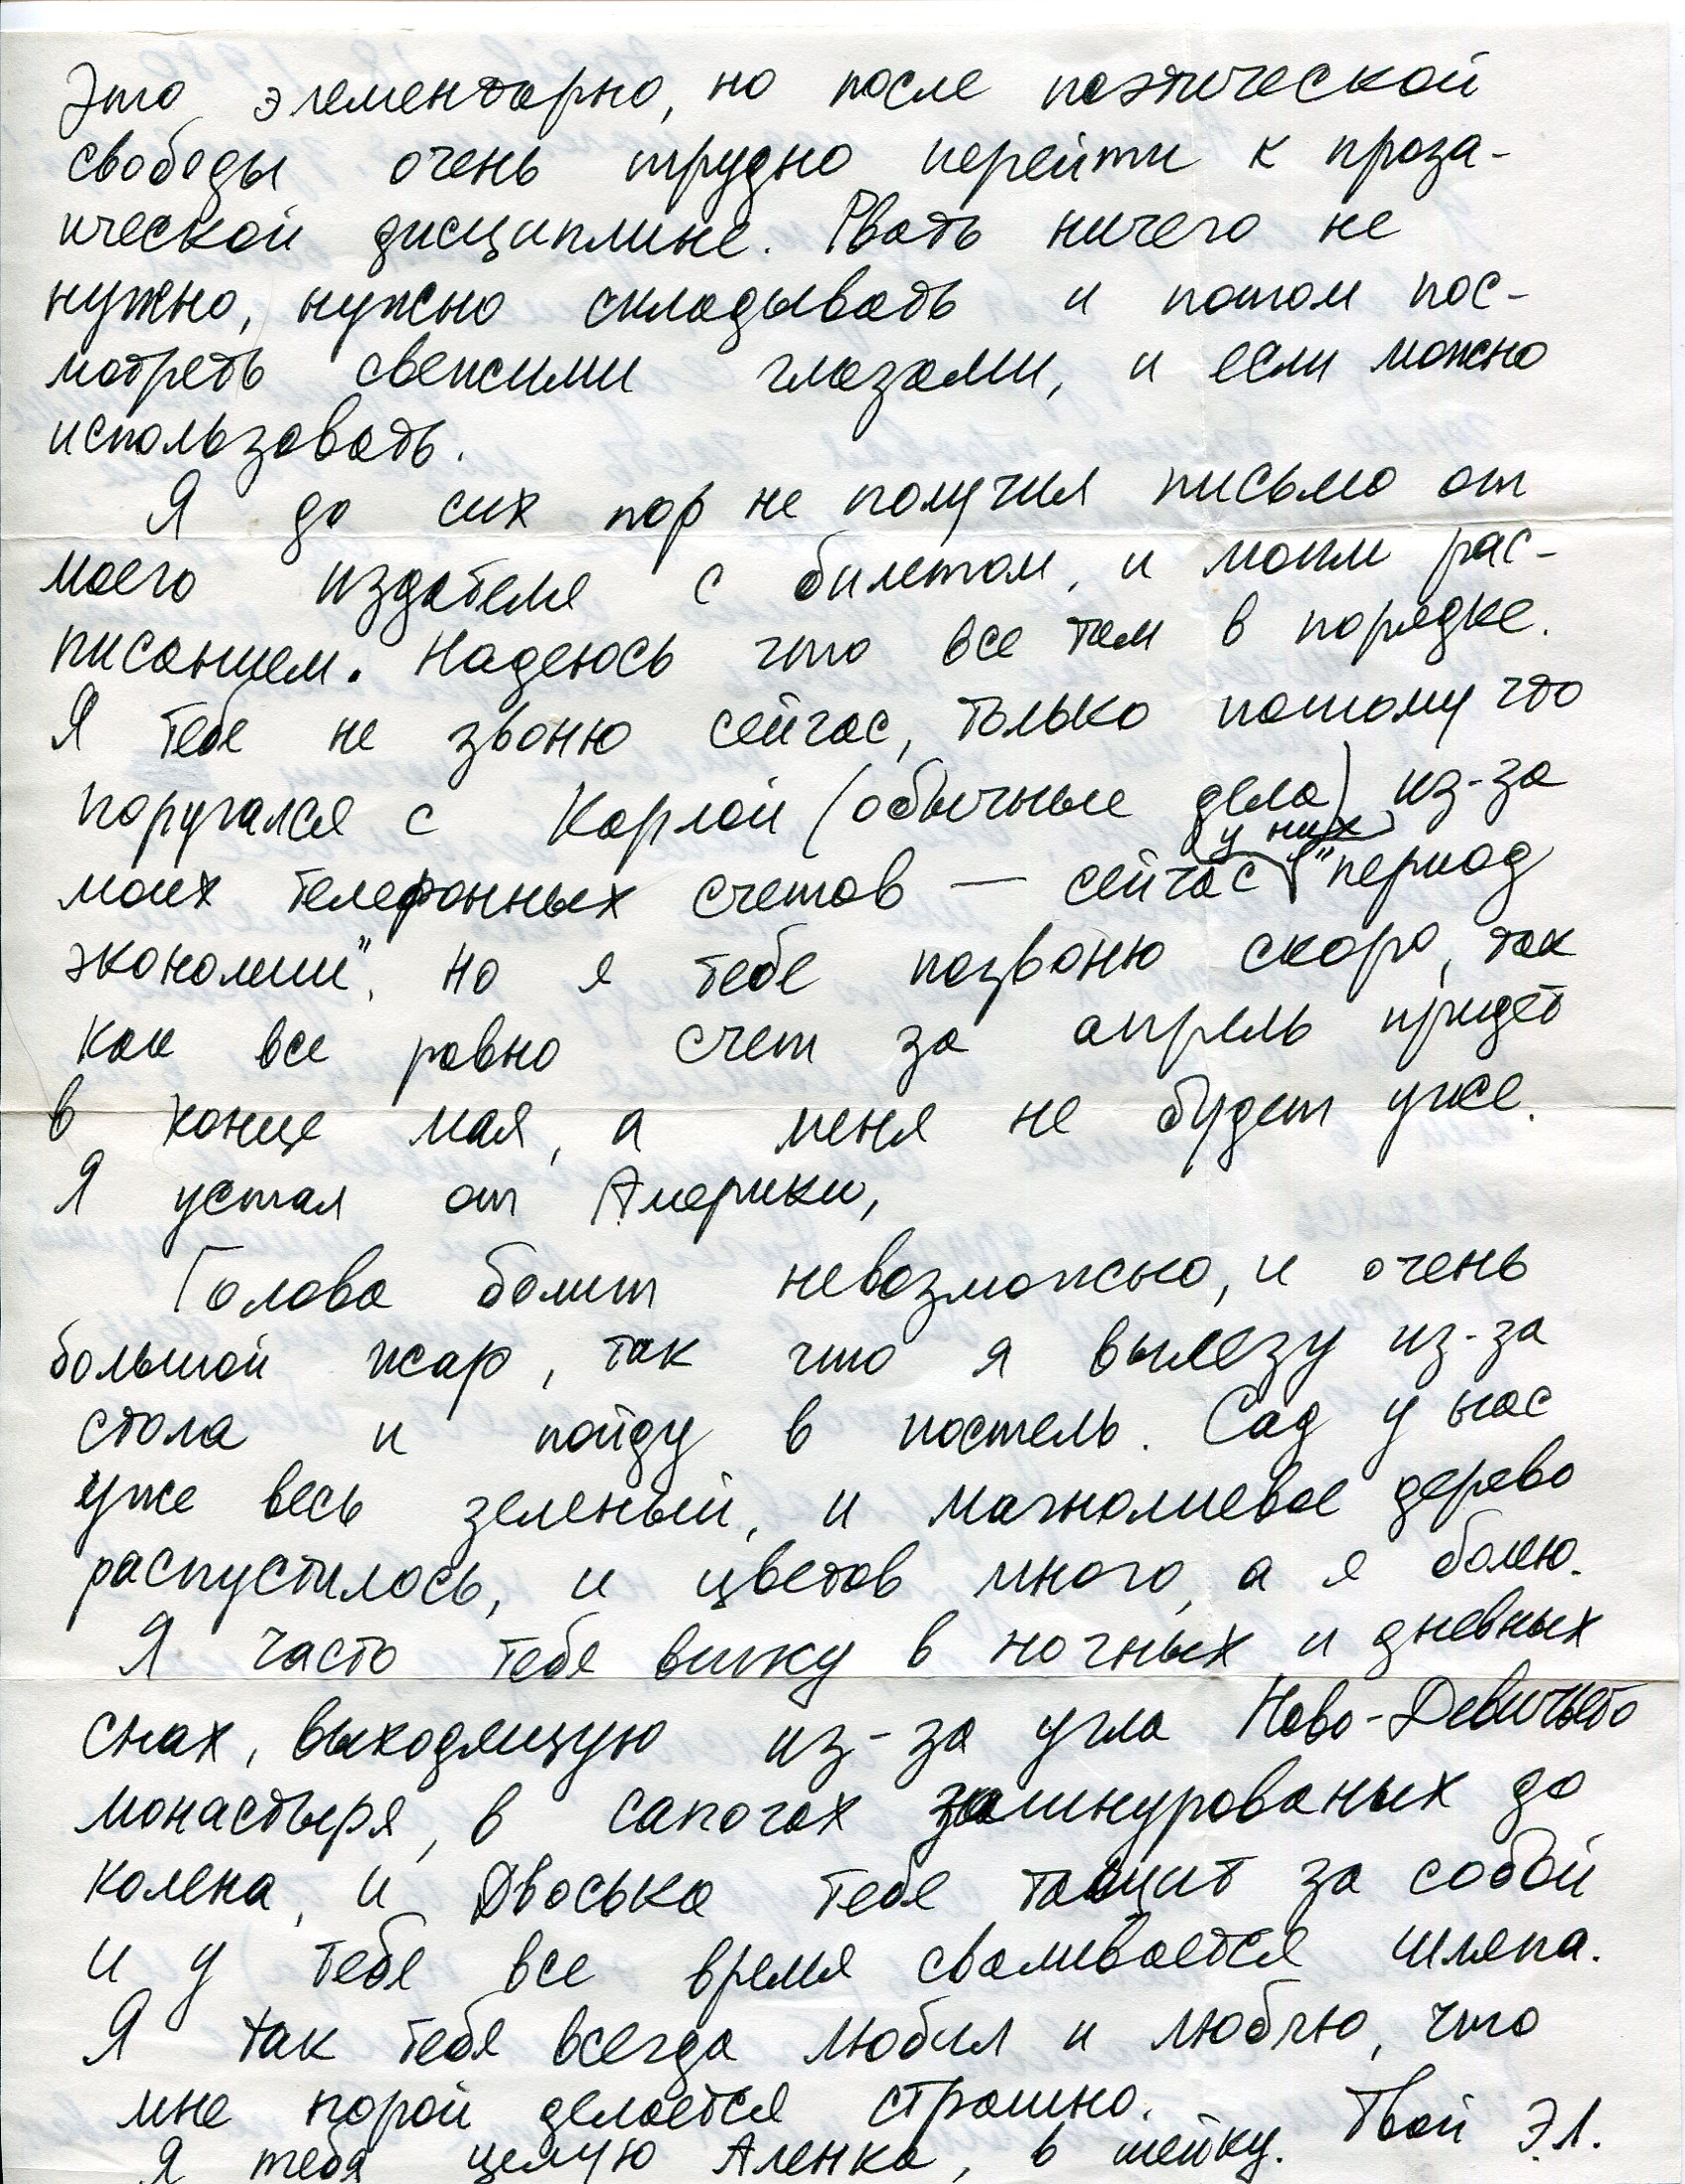 Это элементарно, но после поэтической
свободы очень трудно перейти к проза-
ической дисциплине. Рвать ничего не
нужно, нужно складывать и потом пос-
мотреть свежими глазами, и если можно
использовать.
Я до сих пор не получил письмо от
моего издателя с билетом, и моим рас-
писанием. Надеюсь что все там в порядке.
Я тебе не звоню сейчас, только потому что
поругался с Карлой (обычные дела) из-за
у них
моих телефонных счетов — сейчас "период
экономии", но я тебе позвоню скоро, так
как все равно счет за апрель придет
в конце мая, а меня не будет уже.
Я устал от Америки,
Голова болит невозможно, и очень
большой жар, так что я вылезу из-за
стола и пойду в постель. Сад у нас
уже весь зеленый, и магнолиевое дерево
распустилось, и цветов много, а я болею.
Я часто тебя вижу в ночных и дневных
снах, выходящую из-за угла Ново-Девичьего
монастыря, в сапогах зашнурованых до
колена, и Двоська тебя тащит за собой
и у тебя все время сваливается шляпа.
Я так тебя всегда любил и люблю, что
мне порой делается страшно.
Я тебя целую Аленка, в шейку. Твой Э.Л.